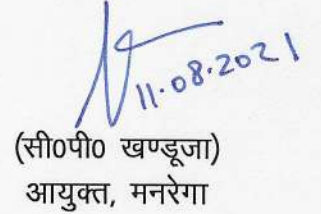 11.08.2021
(सी0पी0 खण्डूजा)
आयुक्त, मनरेगा